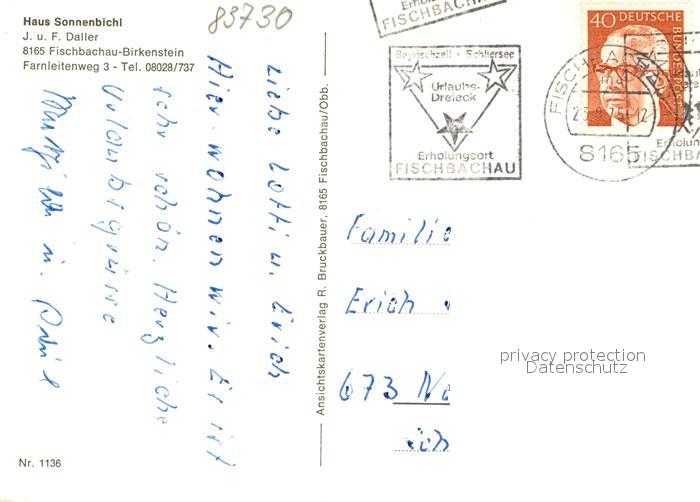 Haus Sonnenbichl
J. u. F. Daller
8165 Fischbachau-Birkenstein
Farnleitenweg 3 - Tel. 08028/737
83730
Liebe Lotti u. Erich
Hier wohnen wir. Es ist
sehr schön. Herzliche
Urlaubsgrüsse
u.
Nr. 1136
Ansichtskartenverlag R. Bruckbauer, 8165 Fischbachau/Obb.
FISCHBACHAU
Bayrischzell - Schliersee
Urlaubs-
Dreieck
Erholungsort
FISCHBACHAU
40 DEUTSCHE
BUNDESPOST
8165
Erholun
FISCHBACH
Familie
Erich
673 Ne
privacy protection
Datenschutz